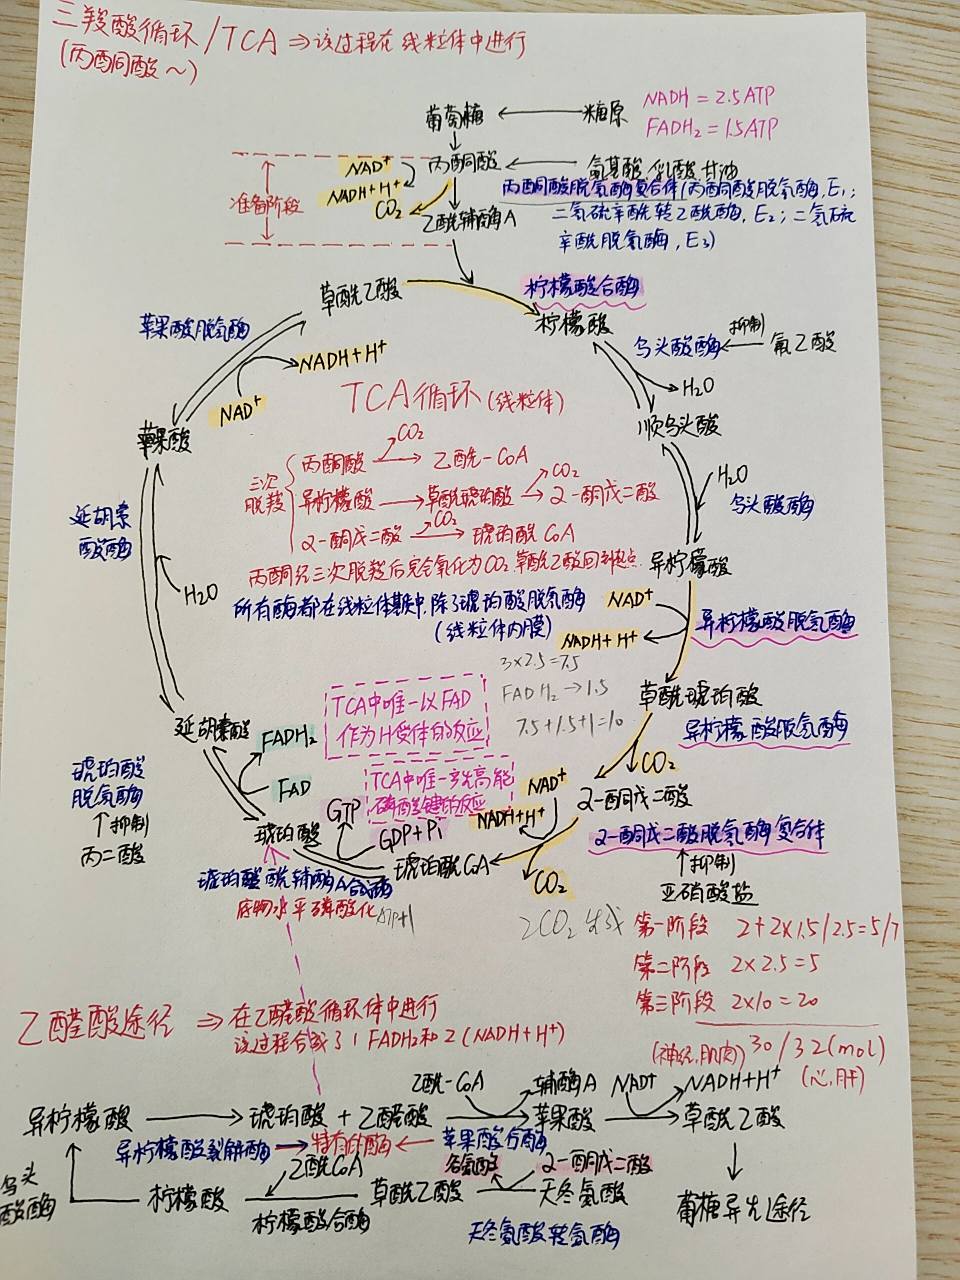 三羧酸循环/TCA ⇒该过程在线粒体中进行
(丙酮酸～)
葡萄糖 ← 糖原
NADH = 2.5ATP
FADH₂ = 1.5ATP
准备阶段
NAD⁺
NADH+H⁺
CO₂
丙酮酸 ← 氨基酸/乳酸 甘油
丙酮酸脱氢酶复合体(丙酮酸脱氢酶,E₁;
二氢硫辛酰转乙酰酶,E₂;二氢硫
辛酰脱氢酶,E₃)
乙酰辅酶A
草酰乙酸
柠檬酸合酶
柠檬酸
苹果酸脱氢酶
NADH+H⁺
NAD⁺
苹果酸
乌头酸酶 ← 抑制 氟乙酸
H₂O
顺乌头酸
H₂O
乌头酸酶
异柠檬酸
TCA循环(线粒体)
三次
脱羧
丙酮酸 → 乙酰-CoA
CO₂
异柠檬酸 → 草酰琥珀酸 → α-酮戊二酸
CO₂
α-酮戊二酸 → 琥珀酰CoA
CO₂
丙酮经三次脱羧后完全氧化为CO₂,草酰乙酸回到起点.
所有酶都在线粒体基质中,除了琥珀酸脱氢酶
(线粒体内膜)
延胡索
酸酶
H₂O
NAD⁺
NADH+H⁺
异柠檬酸脱氢酶
3×2.5=7.5
FADH₂→1.5
7.5+1.5+1=10
草酰琥珀酸
异柠檬酸脱氢酶
CO₂
延胡索酸
FADH₂
FAD
TCA中唯一以FAD
作为H受体的反应
TCA中唯一产高能
磷酸键的反应
琥珀酸
脱氢酶
↑抑制
丙二酸
GTP
GDP+Pi
NAD⁺
NADH+H⁺
α-酮戊二酸
α-酮戊二酸脱氢酶复合体
↑抑制
亚硝酸盐
琥珀酸
琥珀酰CoA
CO₂
琥珀酸酰辅酶A合成酶
底物水平磷酸化
ATP+1
2CO₂生成
第一阶段 2+2×1.5/2.5=5/7
第二阶段 2×2.5=5
第三阶段 2×10=20
(神经,肌肉) 30/32(mol)
(心,肝)
乙醛酸途径 ⇒ 在乙醛酸循环体中进行
该过程合成了1 FADH₂和2(NADH+H⁺)
乙酰-CoA 辅酶A NAD⁺ NADH+H⁺
异柠檬酸 → 琥珀酸 + 乙醛酸 → 苹果酸 → 草酰乙酸
异柠檬酸裂解酶 → 特有的酶 ← 苹果酸合酶
乙酰CoA 谷氨酸 α-酮戊二酸
乌头
酸酶
柠檬酸 ← 草酰乙酸 ← 天冬氨酸 葡糖异生途径
柠檬酸合酶 天冬氨酸转氨酶